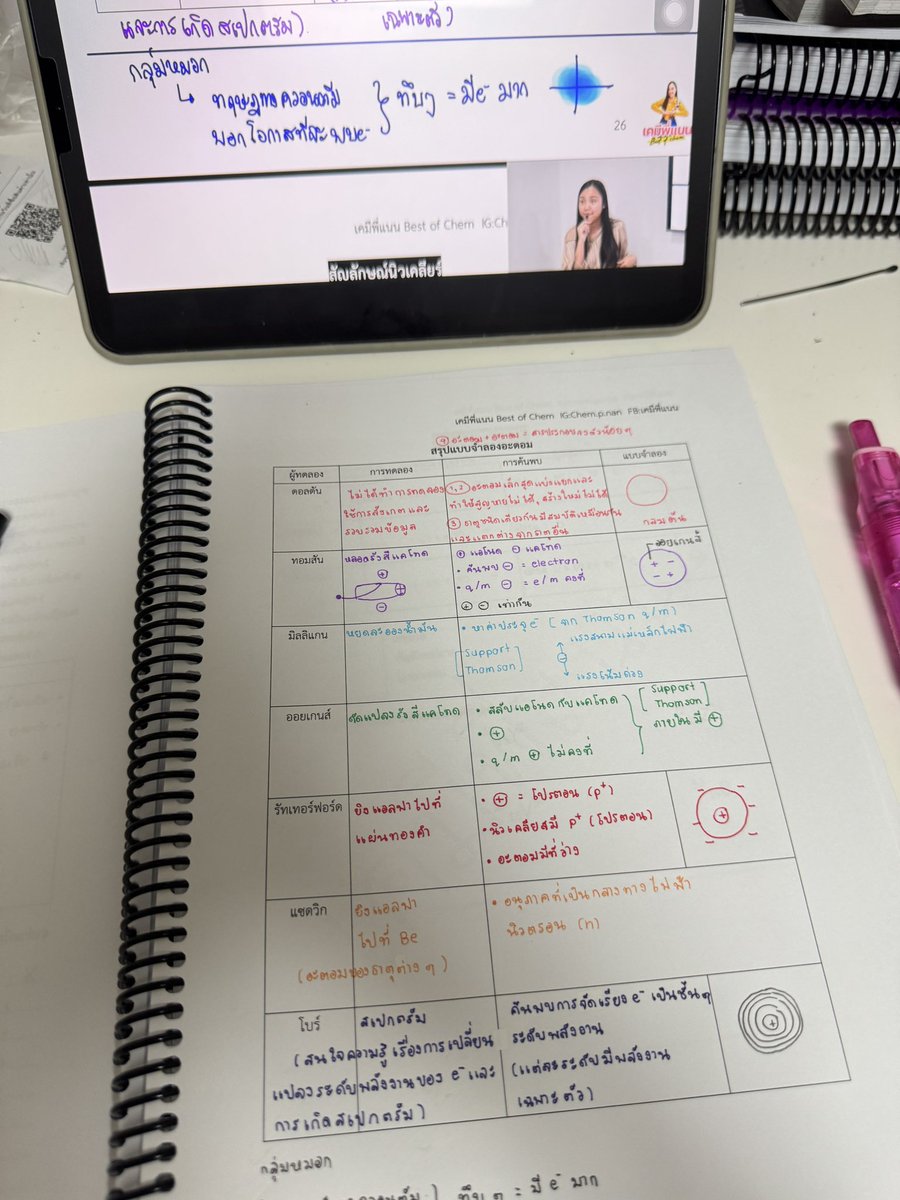 และการเกิดสเปกตรัม)
เฉพาะตัว)
กลุ่มหมอก
↳ ทฤษฎีทางควอนตัม
บอกโอกาสที่จะพบ e⁻
ทึบๆ = มี e⁻ มาก
26
เคมีพี่แนน
Best of Chem
เคมีพี่แนน Best of Chem IG:Ch
สัญลักษณ์นิวเคลียร์
เคมีพี่แนน Best of Chem IG:Chem.p.nan FB:เคมีพี่แนน
④ อะตอม + อะตอม = สารประกอบ
สรุปแบบจำลองอะตอม
ผู้ทดลอง การทดลอง การค้นพบ แบบจำลอง
ดอลตัน
ไม่ได้ทำการทดลอง
ใช้การสังเกตและ
รวบรวมข้อมูล
①,② อะตอมเล็กสุดแบ่งแยกและ
ทำให้สูญหายไม่ได้, สร้างใหม่ไม่ได้
③ ธาตุชนิดเดียวกันมีสมบัติเหมือนกัน
และแตกต่างจากธาตุอื่น
กลมตัน
ทอมสัน
หลอดรังสีแคโทด
⊕
⊕
⊖
⊕ แอโนด ⊖ แคโทด
• ค้นพบ ⊖ = electron
• q/m ⊖ = e/m คงที่
⊕ ⊖ เท่ากัน
ออยเกนส์
+ +
− −
มิลลิแกน
หยดละอองน้ำมัน
• หาค่าประจุ e⁻ [จาก Thomson q/m]
[Support
Thomson]
แรงสนามแม่เหล็กไฟฟ้า
⊖
แรงโน้มถ่วง
ออยเกนส์
ดัดแปลงรังสีแคโทด
• สลับแอโนดกับแคโทด
• ⊕
• q/m ⊕ ไม่คงที่
[Support
Thomson]
ภายในมี ⊕
รัทเทอร์ฟอร์ด
ยิงแอลฟาไปที่
แผ่นทองคำ
• ⊕ = โปรตอน (p⁺)
• นิวเคลียสมี p⁺ (โปรตอน)
• อะตอมมีที่ว่าง
⊕
แชดวิก
ยิงแอลฟา
ไปที่ Be
(อะตอมของธาตุต่างๆ)
• อนุภาคที่เป็นกลางทางไฟฟ้า
นิวตรอน (n)
โบร์
สเปกตรัม
(สนใจความรู้เรื่องการเปลี่ยน
แปลงระดับพลังงานของ e⁻ และ
การเกิดสเปกตรัม)
ค้นพบการจัดเรียง e⁻ เป็นชั้นๆ
ระดับพลังงาน
(แต่ละระดับมีพลังงาน
เฉพาะตัว)
⊕
กลุ่มหมอก
ทึบๆ = มี e⁻ มาก